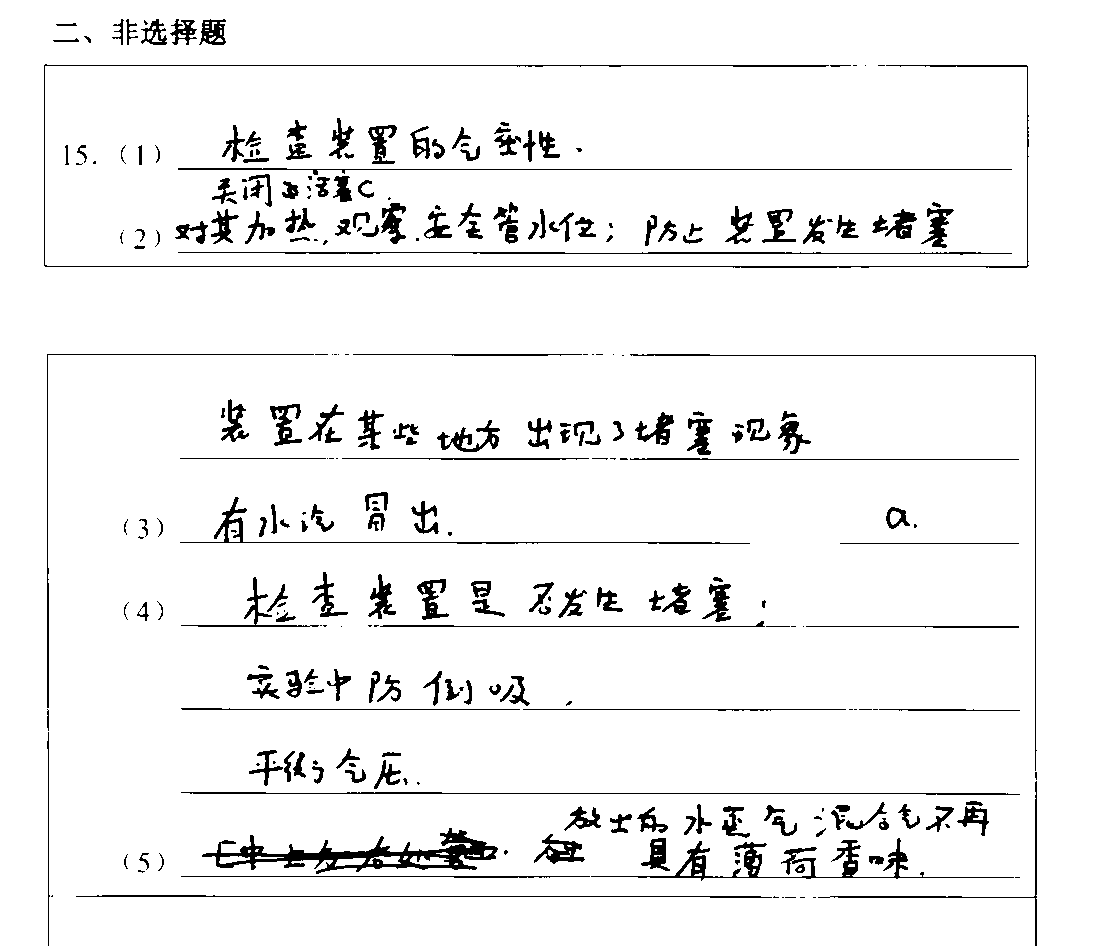 二、非选择题
15.（1）检查装置的气密性.
关闭活塞C.
（2）对其加热,观察.安全管水位；防止装置发生堵塞
装置在某些地方出现了堵塞现象
（3）有水汽冒出. a.
（4）检查装置是否发生堵塞；
实验中防倒吸.
平衡气压.
放出的水蒸气混合气不再
（5）具有薄荷香味.